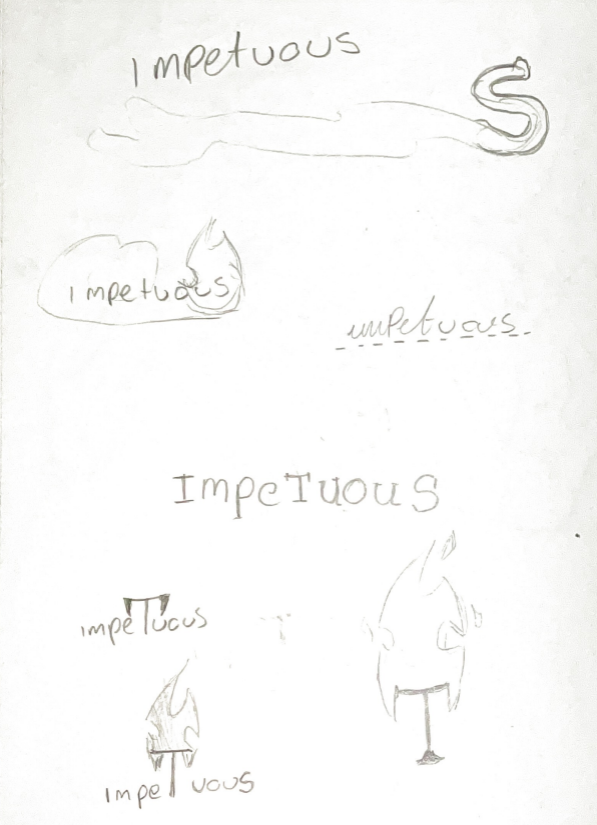 Impetuous
S
Impetuous
impetuous
ImpeTuouS
impeTuous
T
impeTuous